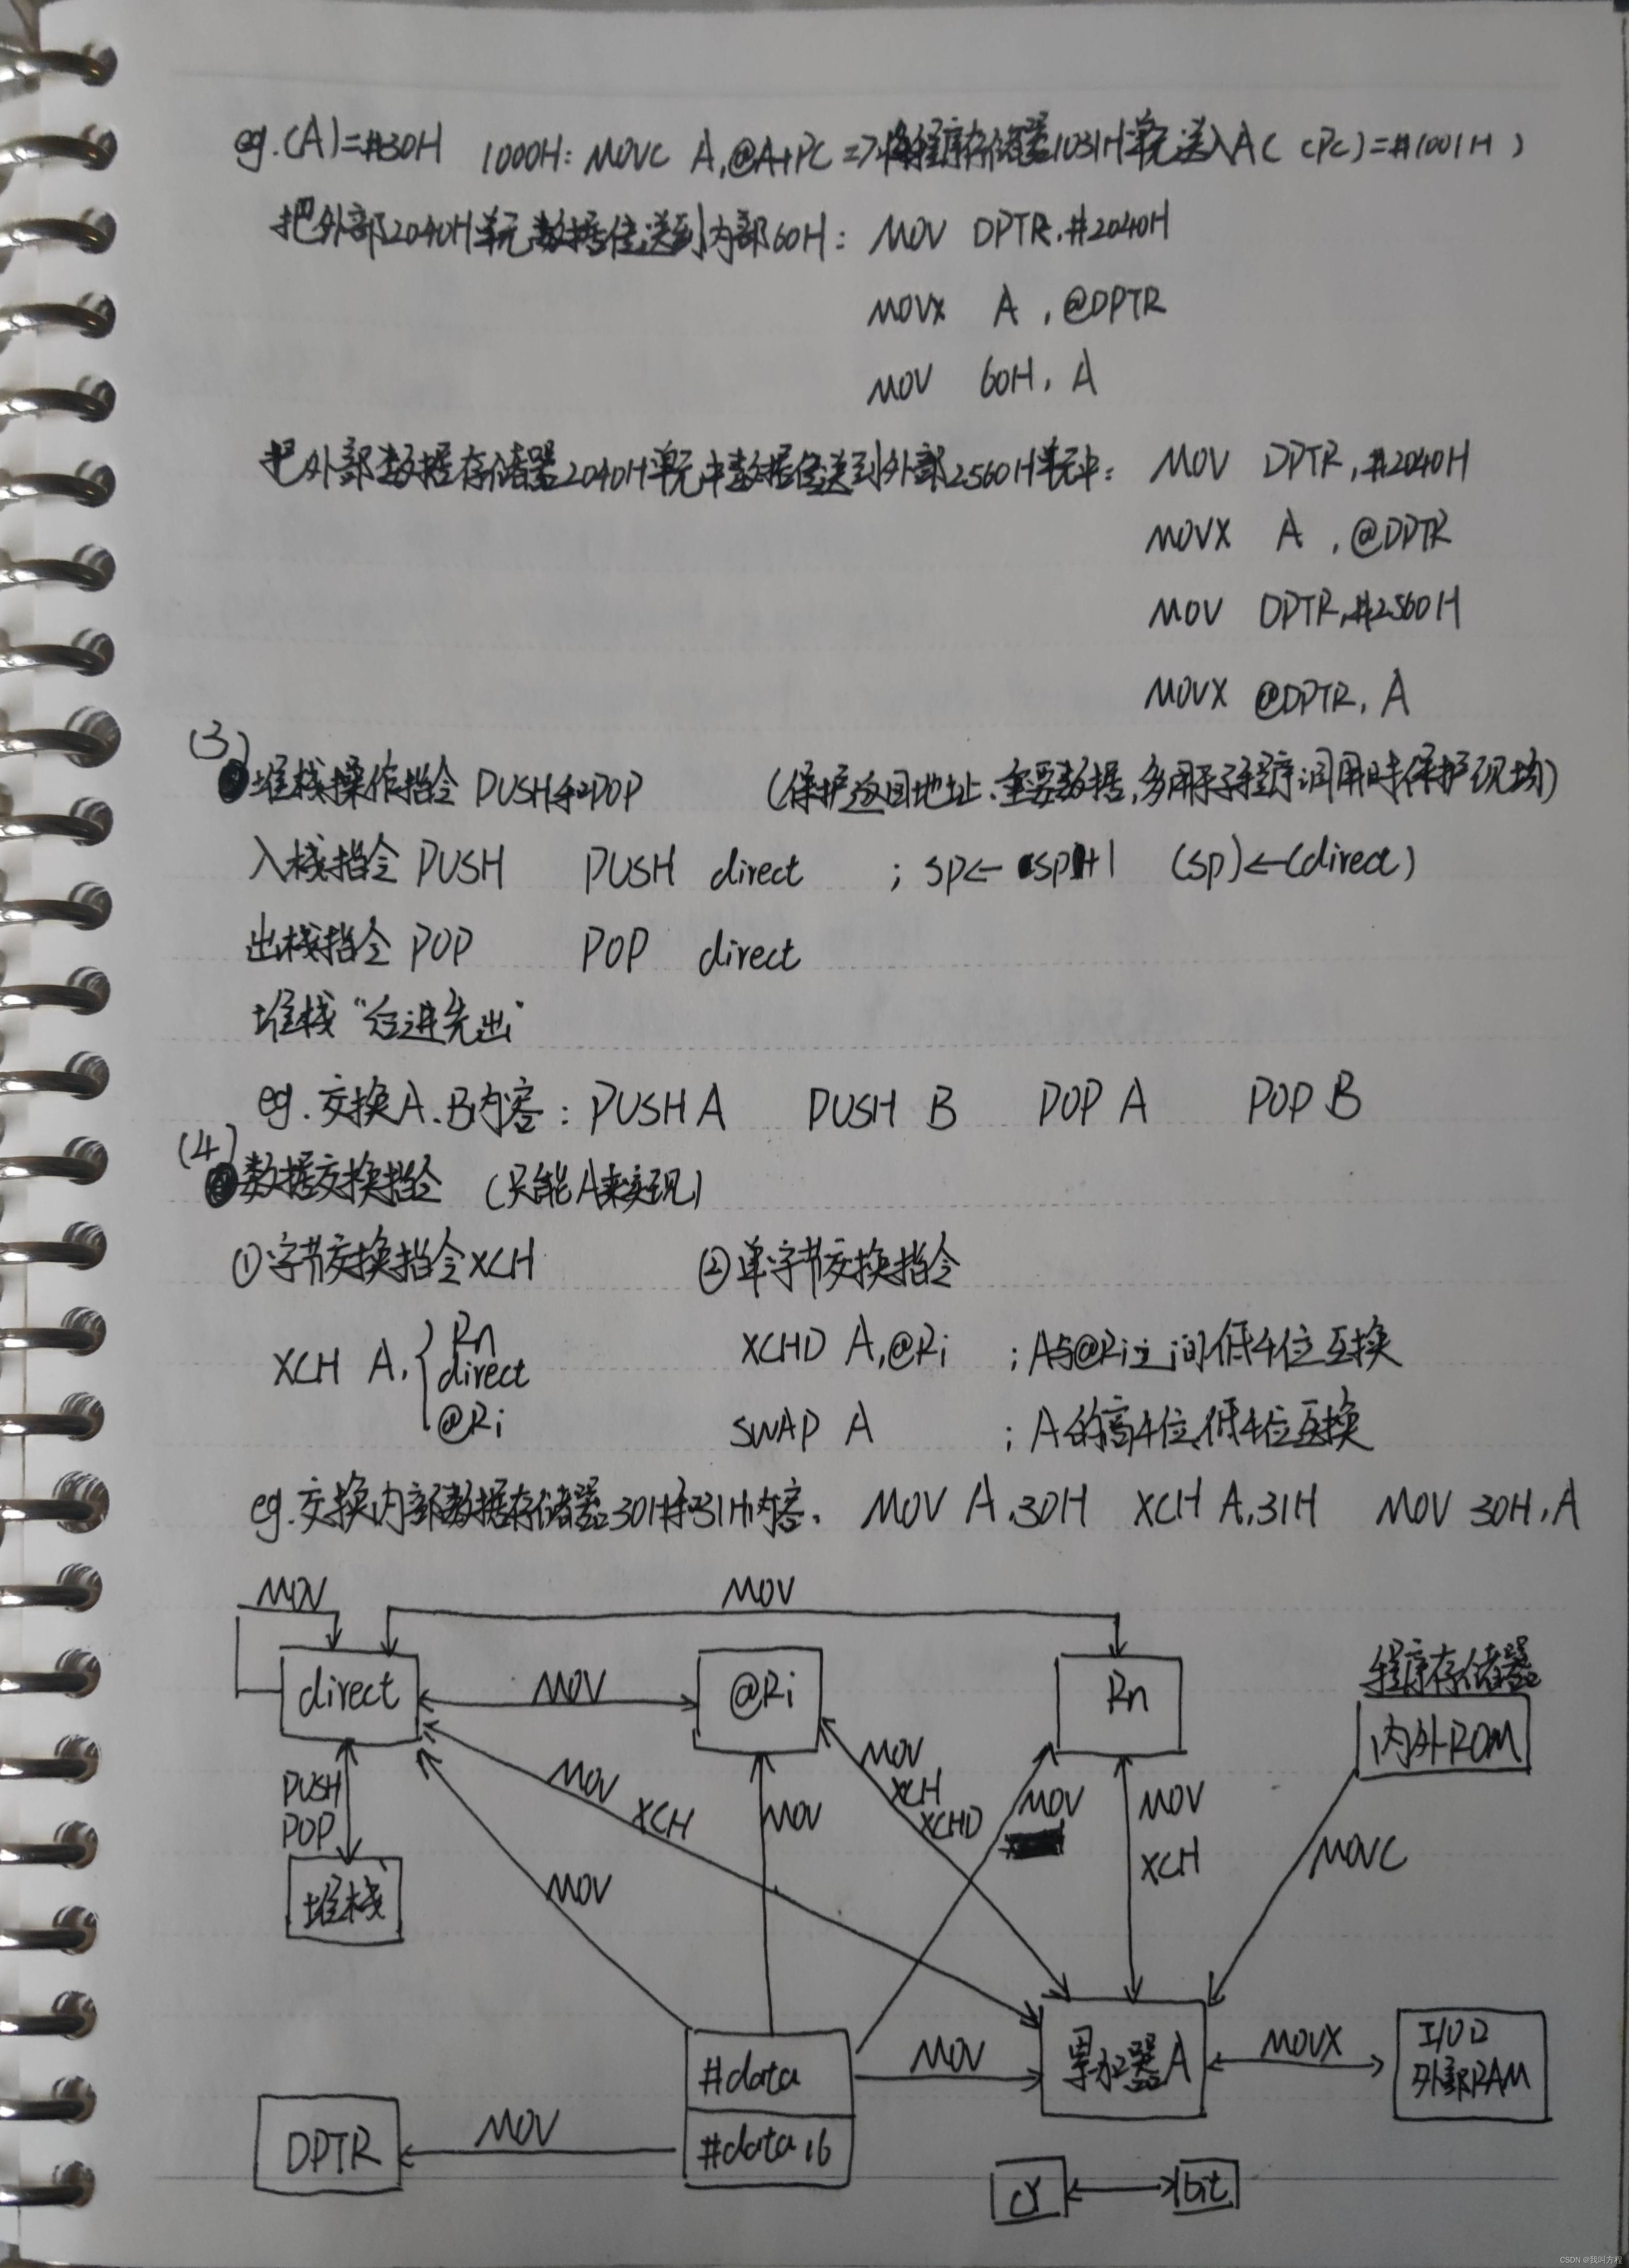 eg.(A)=#30H 1000H: MOVC A,@A+PC => 将程序存储器1031H单元送入A( (PC)=#1001H )
把外部2040H单元数据传送到内部60H: MOV DPTR,#2040H
MOVX A,@DPTR
MOV 60H,A
把外部数据存储器2040H单元中数据传送到外部2560H单元中: MOV DPTR,#2040H
MOVX A,@DPTR
MOV DPTR,#2560H
MOVX @DPTR,A
(3) 堆栈操作指令 PUSH和POP (保护返回地址、重要数据,多用于子程序调用时保护现场)
入栈指令 PUSH PUSH direct ; SP← SP+1 (SP)←(direct)
出栈指令 POP POP direct
堆栈“后进先出”
eg.交换A.B内容: PUSH A PUSH B POP A POP B
(4) 数据交换指令 (只能A来实现)
①字节交换指令XCH ②单字节交换指令
XCH A,{ Rn
direct
@Ri
XCHD A,@Ri ;A与@Ri之间低4位互换
SWAP A ;A的高4位,低4位互换
eg.交换内部数据存储器30H和31H内容. MOV A,30H XCH A,31H MOV 30H,A
MOV MOV
direct MOV @Ri Rn 程序存储器
内外ROM
PUSH
POP
MOV XCH
MOV
MOV
XCH
XCHD
MOV
MOV
XCH
MOVC
堆栈
MOV
#data MOV 累加器A MOVX I/O口
外部RAM
DPTR MOV #data16
CY bit
CSDN @我叫方程